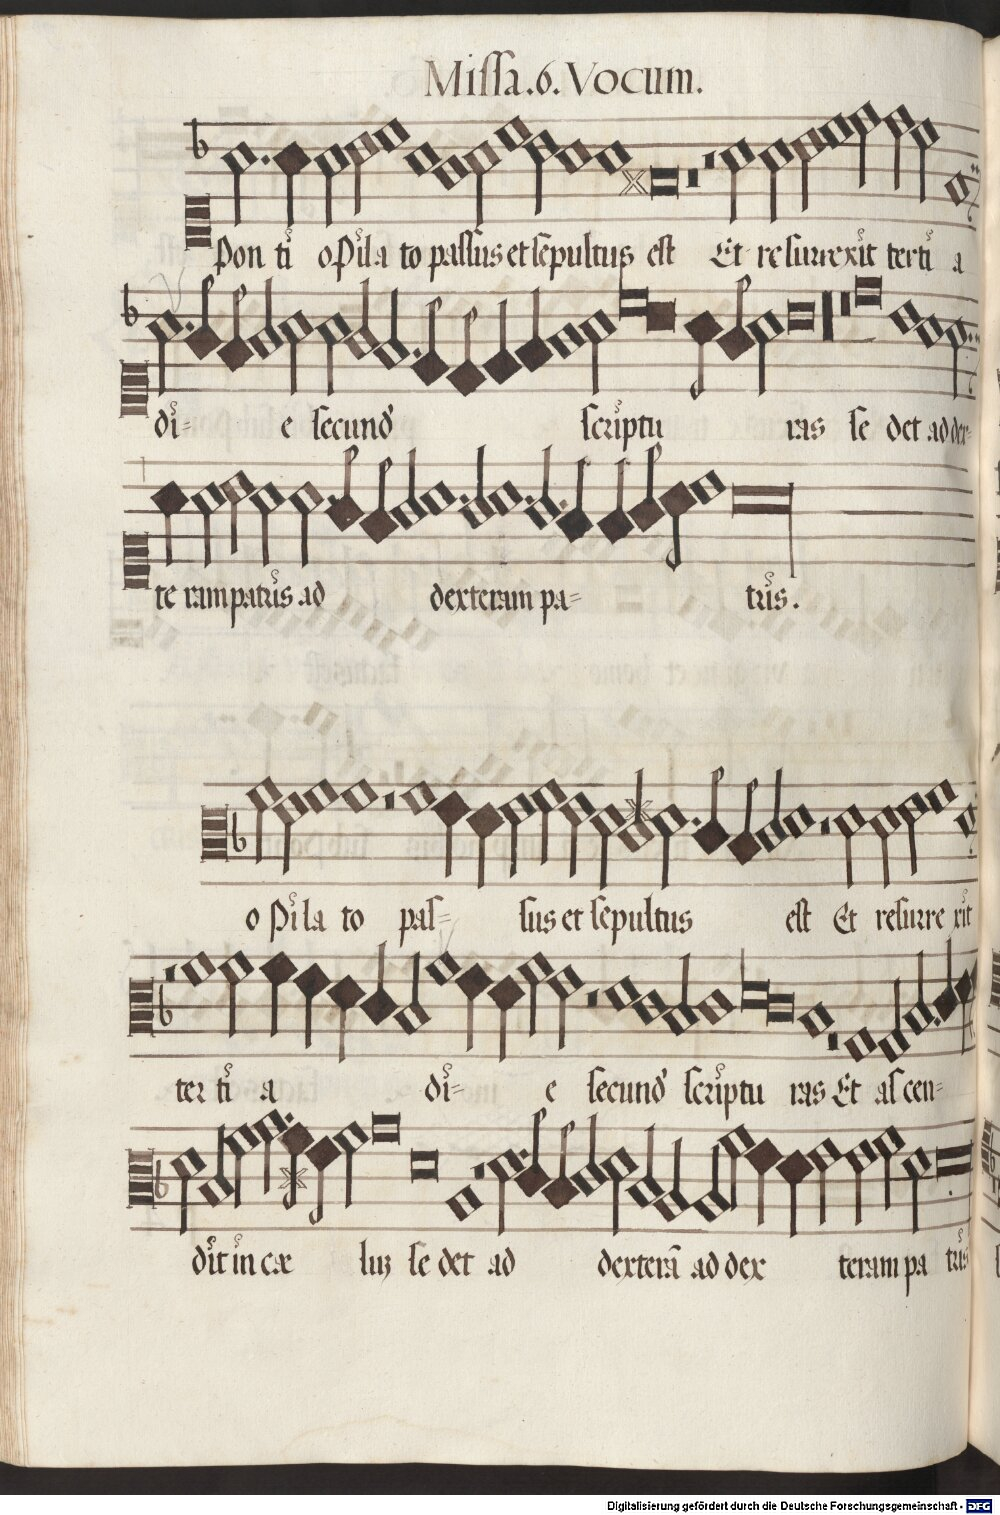 Missa.6.Vocum.
Pon ti o Pila to passus et sepultus est Et resurrexit terti a
di= e secund' scriptu ras se det ad dex=
te ram patris ad dexteram pa= tris.
o Pi la to pas= sus et sepultus est Et resurre xit
ter ti a di= e secund' scriptu ras Et ascen=
dit in cæ luʒ se det ad dexterã ad dex teram pa tris
Digitalisierung gefördert durch die Deutsche Forschungsgemeinschaft - DFG